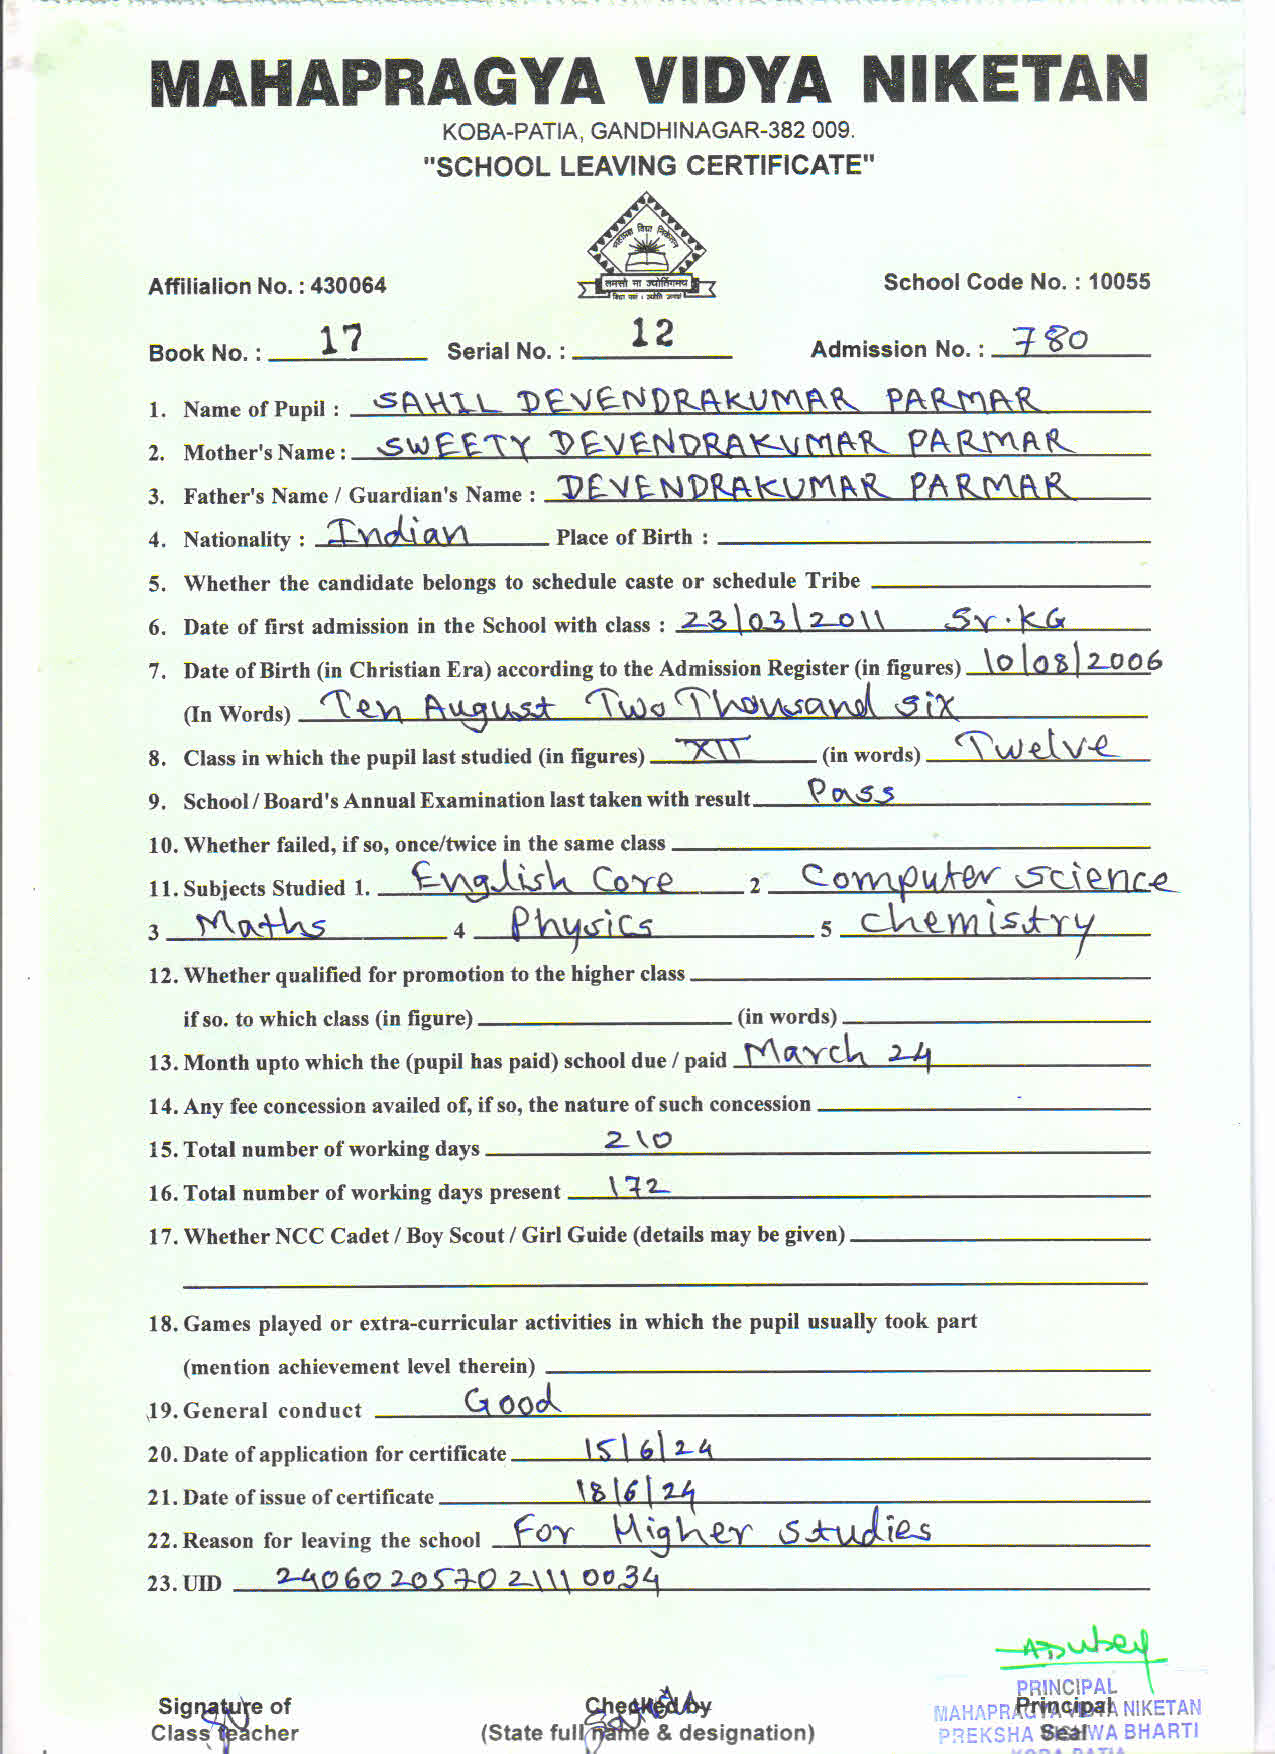 MAHAPRAGYA VIDYA NIKETAN
KOBA-PATIA, GANDHINAGAR-382 009.
"SCHOOL LEAVING CERTIFICATE"
महाप्रज्ञ विद्या निकेतन
तमसो मा ज्योतिर्गमय
Affilialion No. : 430064 School Code No. : 10055
Book No. : 17 Serial No. : 12 Admission No. : 780
1. Name of Pupil : SAHIL DEVENDRAKUMAR PARMAR
2. Mother's Name : SWEETY DEVENDRAKUMAR PARMAR
3. Father's Name / Guardian's Name : DEVENDRAKUMAR PARMAR
4. Nationality : Indian Place of Birth :
5. Whether the candidate belongs to schedule caste or schedule Tribe
6. Date of first admission in the School with class : 23/03/2011 Sr.KG
7. Date of Birth (in Christian Era) according to the Admission Register (in figures) 10/08/2006
(In Words) Ten August Two Thousand six
8. Class in which the pupil last studied (in figures) XII (in words) Twelve
9. School / Board's Annual Examination last taken with result Pass
10. Whether failed, if so, once/twice in the same class
11. Subjects Studied 1. English Core 2 Computer science
3 Maths 4 Physics 5 Chemistry
12. Whether qualified for promotion to the higher class
if so. to which class (in figure) (in words)
13. Month upto which the (pupil has paid) school due / paid March 24
14. Any fee concession availed of, if so, the nature of such concession
15. Total number of working days 210
16. Total number of working days present 172
17. Whether NCC Cadet / Boy Scout / Girl Guide (details may be given)
18. Games played or extra-curricular activities in which the pupil usually took part
(mention achievement level therein)
19. General conduct Good
20. Date of application for certificate 15/6/24
21. Date of issue of certificate 18/6/24
22. Reason for leaving the school For Higher studies
23. UID 2406020570211110034
ADubey
PRINCIPAL
Signature of Checked by Principal
MAHAPRAGYA VIDYA NIKETAN
Class teacher (State full name & designation) Seal
PREKSHA VISHWA BHARTI
KOBA PATIA